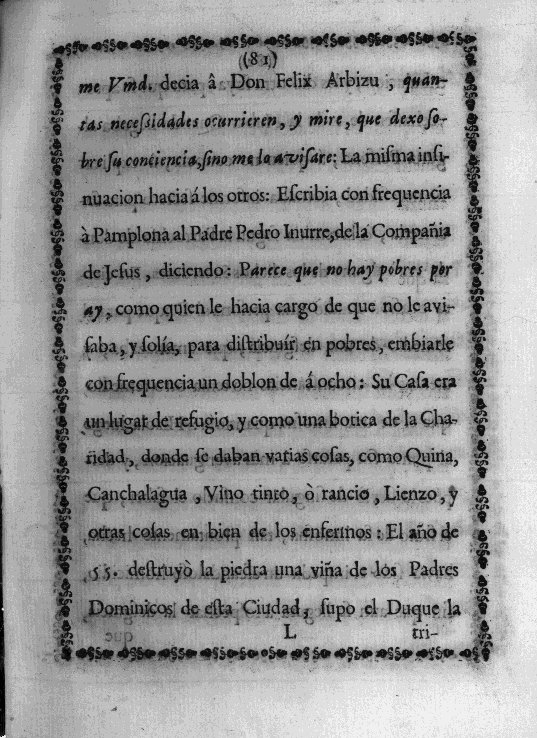 (81)
me Vmd. decia â Don Felix Arbizu, quan-
tas neceſsidades ocurrieren, y mire, que dexo ſo-
bre ſu conciencia, ſino me lo aviſare: La miſma inſi-
nuacion hacia á los otros: Eſcribia con frequencia
à Pamplona al Padre Pedro Inurre, de la Compañia
de Jeſus, diciendo: Parece que no hay pobres por
ay, como quien le hacia cargo de que no le avi-
ſaba, y ſolía, para diſtribuír en pobres, embiarle
con frequencia un doblon de á ocho: Su Caſa era
un lugar de refugio, y como una botica de la Cha-
ridad, donde ſe daban varias coſas, como Quina,
Canchalagua, Vino tinto, ò rancio, Lienzo, y
otras coſas en bien de los enfermos: El año de
55. deſtruyò la piedra una viña de los Padres
Dominicos de eſta Ciudad, ſupo el Duque la
L tri-